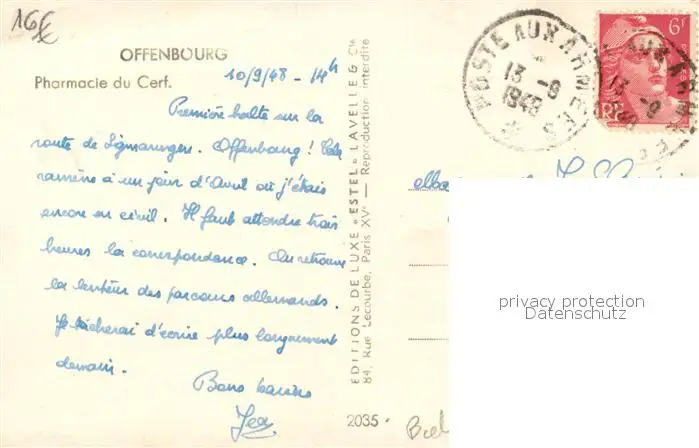 16€
OFFENBOURG
Pharmacie du Cerf.
10/9/48 - 14h
Première halte sur la
route de Sigmaringen. Offenbourg! Cela
ramène à un jour d'Avril où j'étais
encore en civil. Il faut attendre trois
heures la correspondance. On retrouve
la lenteur des parcours allemands.
Je tâcherai d'écrire plus longuement
demain.
Bons baisers
EDITIONS DE LUXE "ESTEL" LAVELLE & Cie
84, Rue Lecourbe, Paris XVe — Reproduction interdite
2035
POSTE AUX ARMEES
13 -9
1948
6f
RF
POSTE AUX ARMEES
13 -9
privacy protection
Datenschutz